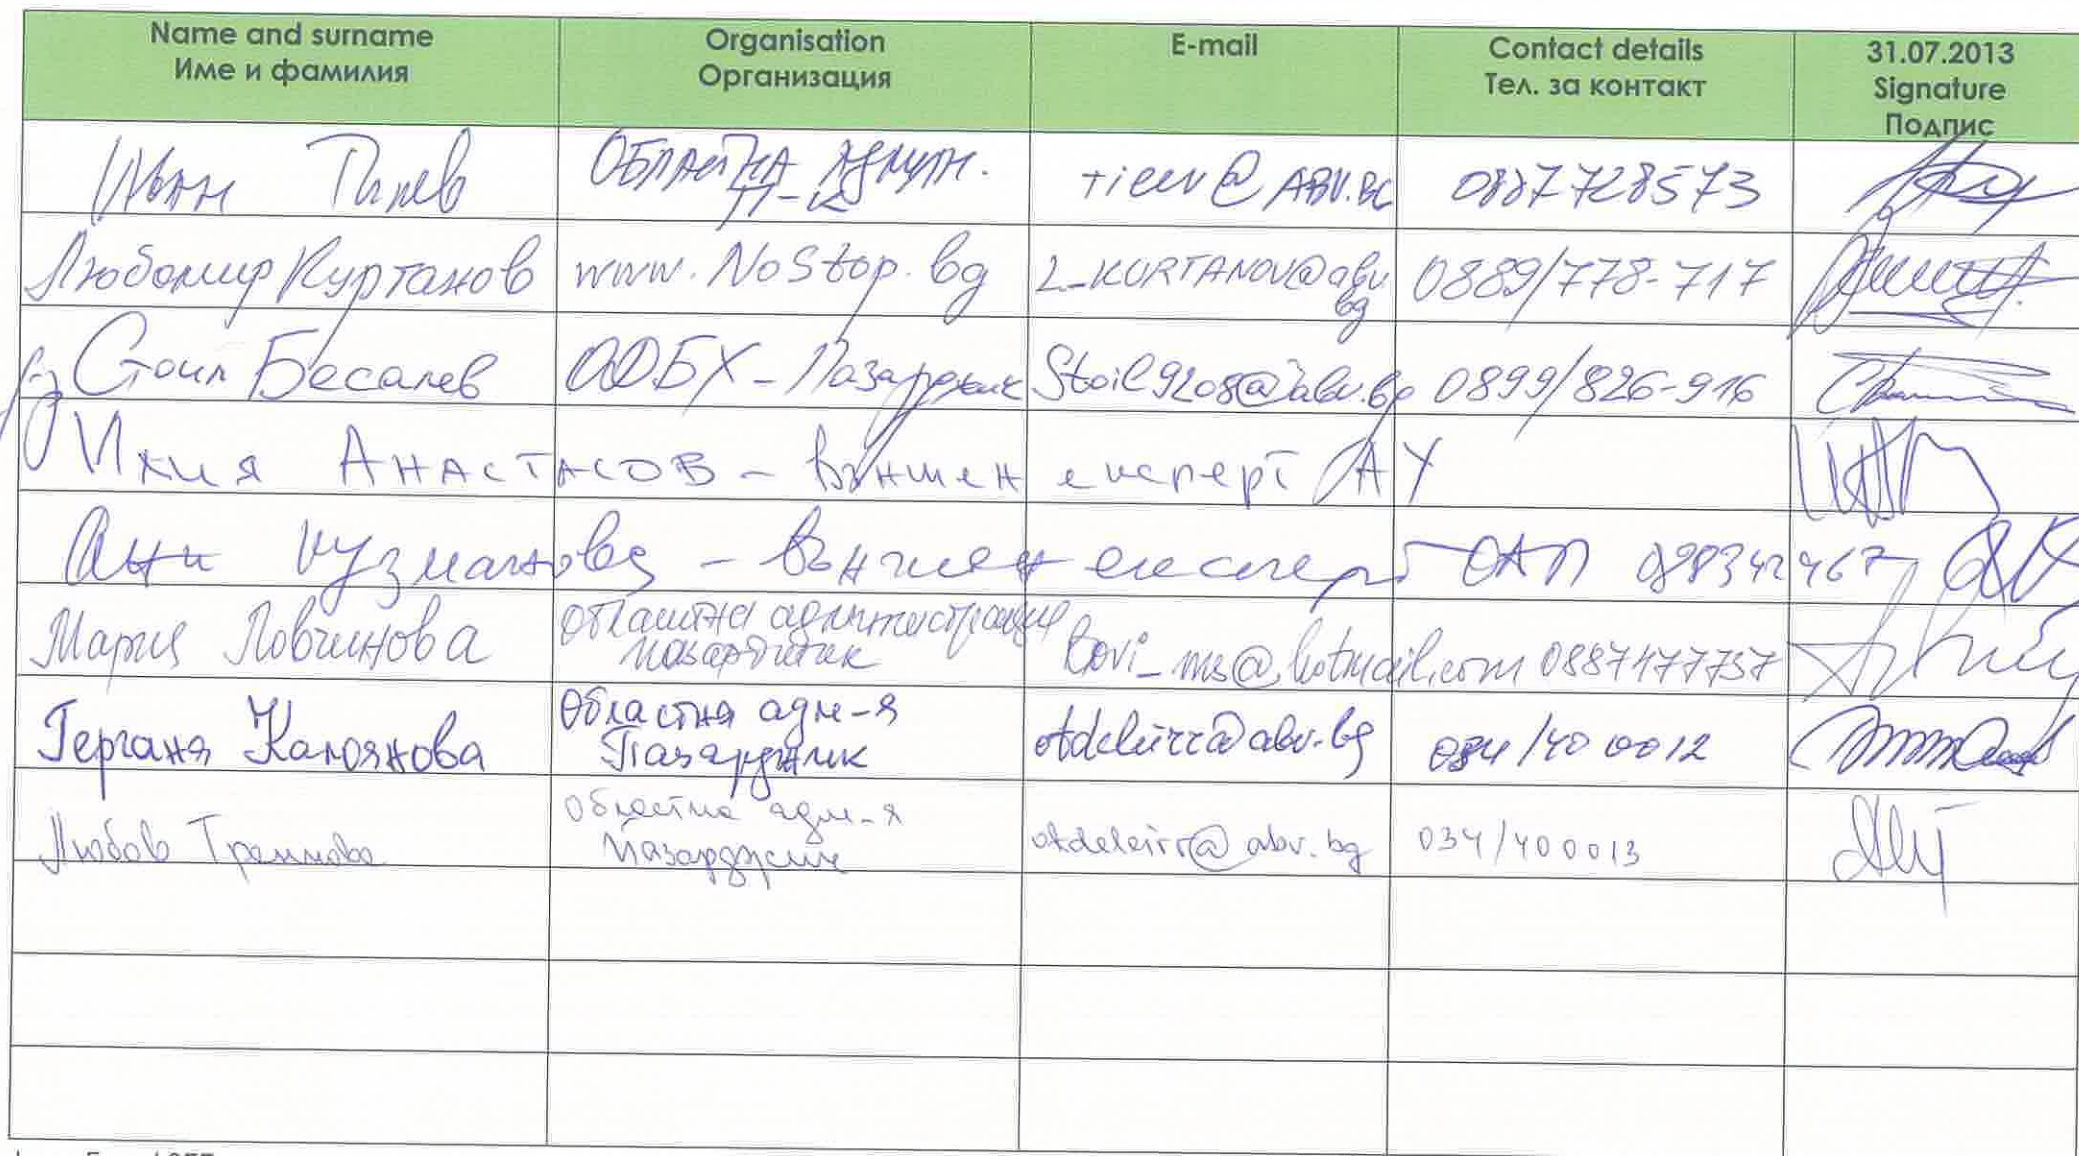 Name and surname
Име и фамилия
Organisation
Организация
E-mail
Contact details
Тел. за контакт
31.07.2013
Signature
Подпис
Иван
0887728573
Любомир Куртанов www.NoStop.bg L_KURTANOV@abv.bg 0889/778-717
Стоил Бесалев ОДБХ - Пазарджик Stoil9208@abv.bg 0899/826-916
Илия Анастасов - външен експерт АУ
Ани Кузманова - външен експерт ОАП
Мария Ловчинова областна администрация
Пазарджик
lovi_ms@hotmail.com 0887177737
Гергана Калоянова Областна адм-я
Пазарджик
otdeleirr@abv.bg 034/40 0012
Любов Областна адм-я
Пазарджик
otdeleirr@abv.bg 034/400013